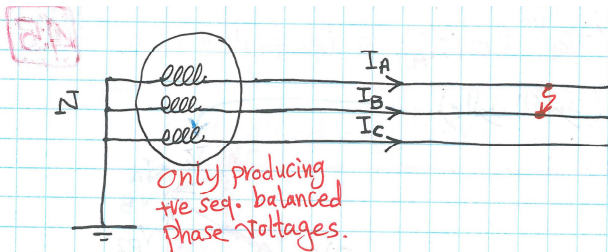 IA
N
IB
IC
Only producing
+ve seq. balanced
phase voltages.